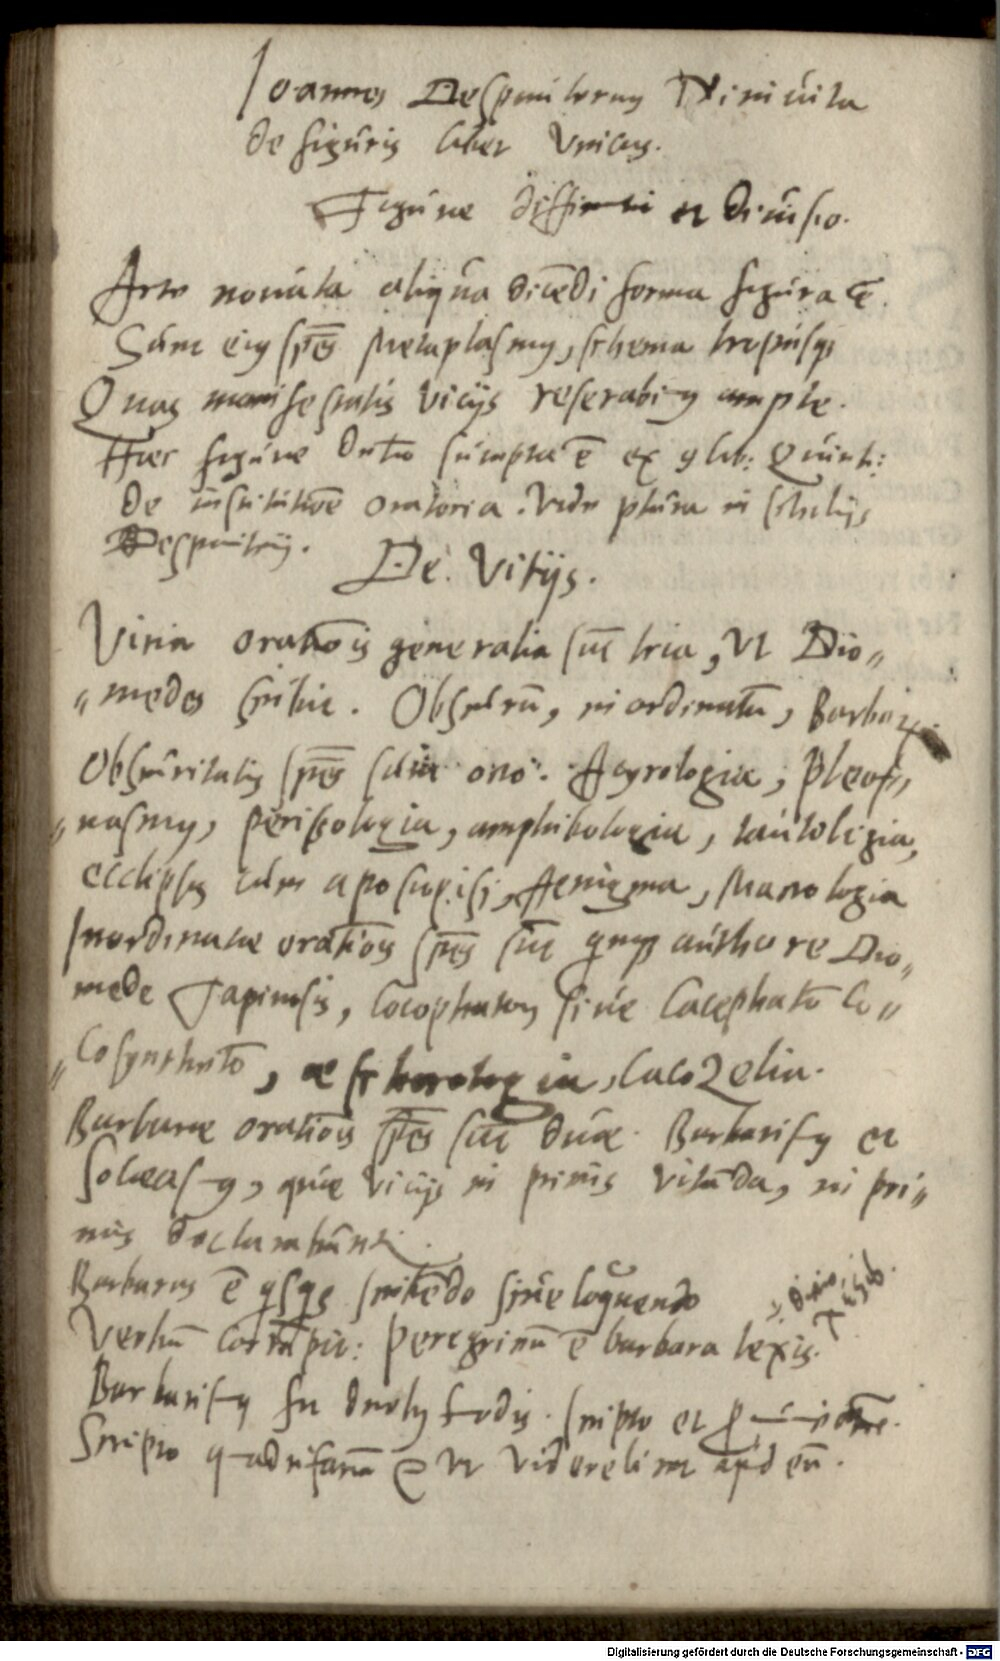 Ioannes Despauterius Niniuita
de figuris liber Vnicus.
Figurae diffinitio et diuisio.
Arte nouata aliqua dicēdi forma figura ē.
Sunt eius spēs Metaplasmus, schema tropusq
Quas manifestatis vicijs reserabimus ample.
Haec figurae diuisio sumpta ē ex 9 lib: Quinti:
de institutiōe oratoria. Vide plura in scholijs
Despauterij.
De Vitijs.
Vitia oratiōis generalia sūt tria, Vt Dio„
„medes scribit. Obscurū, inordinatū, Barbarū.
Obscuritatis spēs sūt octo. Acyrologia, Pleof„
„nasmus, perissologia, amphibologia, tautologia,
ecclipsis cum aposiopisi, Aenigma, Macrologia
Inordinatae oratiōis spēs sūt quinq authore Dio„
mede Tapinosis, Cacophaton siue Cacephatō Ca„
„cosynthetō, aeschrologia, Cacozelia.
Barbarae oratiōis spēs sūt duae. Barbarismus et
Soloecismus, quae vicijs in primis vitāda, in pri„
mis declarabūntur.
Barbarus ē qsqs scribēdo siue loquendo
Verbū corrūpit: peregrinū ē barbara lexis.
Barbarismus fit duobus modis. scripto et
Scripto quadrifariā Vt Videre licet apud eū.
Digitalisierung gefördert durch die Deutsche Forschungsgemeinschaft - DFG